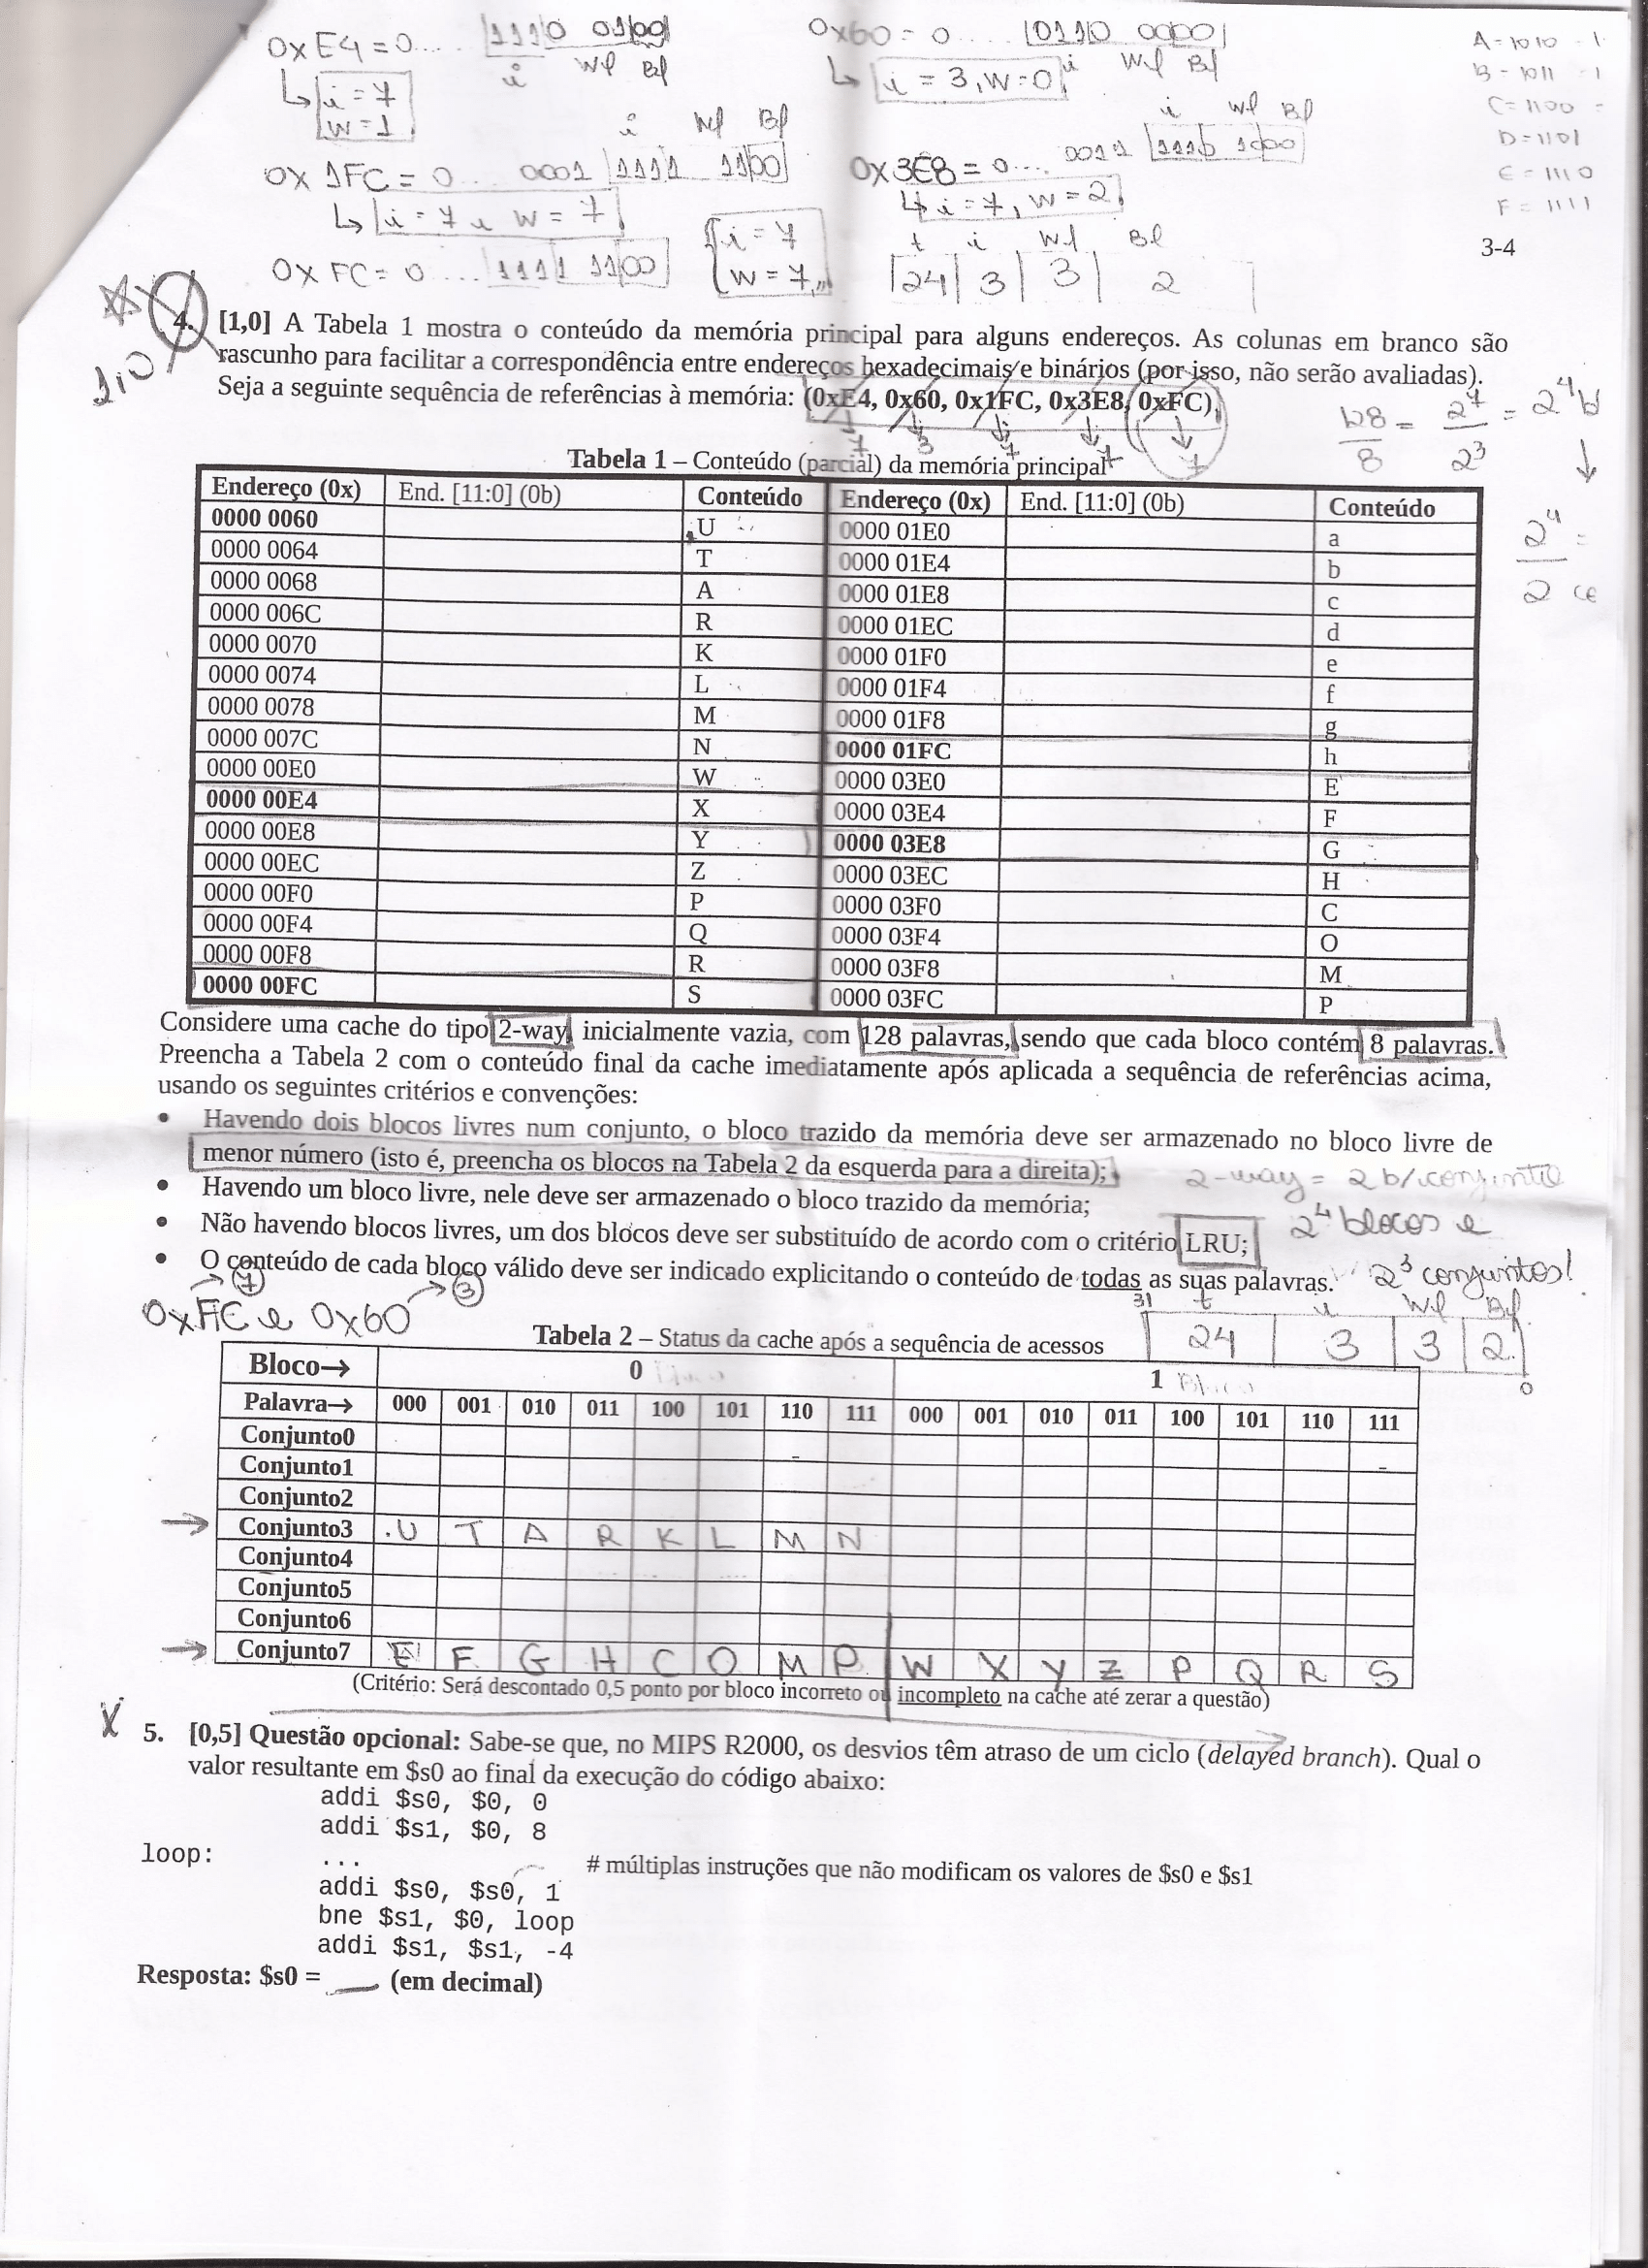 0xE4 = 0.... 1110 0100
i Wf Bf
↳ i = 7
w = 1
0x60 = 0.... 0110 0000
i Wf Bf
↳ i = 3, w = 0
A = 1010
B = 1011
C = 1100
D = 1101
E = 1110
F = 1111
i Wf Bf
0x 1FC = 0... 0001 1111 1100
↳ i = 7 e w = 7
i Wf Bf
0x3E8 = 0.... 0011 1110 1000
↳ i = 7, w = 2
0x FC = 0.... 1111 1100
i = 7
w = 7
t i Wf Bf
24 3 3 2
3-4
1,0
4. [1,0] A Tabela 1 mostra o conteúdo da memória principal para alguns endereços. As colunas em branco são
rascunho para facilitar a correspondência entre endereços hexadecimais e binários (por isso, não serão avaliadas).
Seja a seguinte sequência de referências à memória: (0xE4, 0x60, 0x1FC, 0x3E8, 0xFC).
7 3 7 7 7
128/8 = 2⁷/2³ = 2⁴ b
↓
2⁴/2 =
Tabela 1 – Conteúdo (parcial) da memória principal
Endereço (0x) End. [11:0] (0b) Conteúdo Endereço (0x) End. [11:0] (0b) Conteúdo
0000 0060 U 0000 01E0 a
0000 0064 T 0000 01E4 b
0000 0068 A 0000 01E8 c
0000 006C R 0000 01EC d
0000 0070 K 0000 01F0 e
0000 0074 L 0000 01F4 f
0000 0078 M 0000 01F8 g
0000 007C N 0000 01FC h
0000 00E0 W 0000 03E0 E
0000 00E4 X 0000 03E4 F
0000 00E8 Y 0000 03E8 G
0000 00EC Z 0000 03EC H
0000 00F0 P 0000 03F0 C
0000 00F4 Q 0000 03F4 O
0000 00F8 R 0000 03F8 M
0000 00FC S 0000 03FC P
Considere uma cache do tipo 2-way, inicialmente vazia, com 128 palavras, sendo que cada bloco contém 8 palavras.
Preencha a Tabela 2 com o conteúdo final da cache imediatamente após aplicada a sequência de referências acima,
usando os seguintes critérios e convenções:
• Havendo dois blocos livres num conjunto, o bloco trazido da memória deve ser armazenado no bloco livre de
menor número (isto é, preencha os blocos na Tabela 2 da esquerda para a direita);
2-way = 2 b/conjunto
• Havendo um bloco livre, nele deve ser armazenado o bloco trazido da memória;
• Não havendo blocos livres, um dos blocos deve ser substituído de acordo com o critério LRU;
2⁴ blocos e
• O conteúdo de cada bloco válido deve ser indicado explicitando o conteúdo de todas as suas palavras.
2³ conjuntos!
→ 7 → 3
0xFC e 0x60
31 t i Wf Bf
24 3 3 2
0
Tabela 2 – Status da cache após a sequência de acessos
Bloco→ 0 Bloco 1 Bloco
Palavra→ 000 001 010 011 100 101 110 111 000 001 010 011 100 101 110 111
Conjunto0
Conjunto1
Conjunto2
→ Conjunto3 U T A R K L M N
Conjunto4
Conjunto5
Conjunto6
→ Conjunto7 E F G H C O M P W X Y Z P Q R S
(Critério: Será descontado 0,5 ponto por bloco incorreto ou incompleto na cache até zerar a questão)
X
5. [0,5] Questão opcional: Sabe-se que, no MIPS R2000, os desvios têm atraso de um ciclo (delayed branch). Qual o
valor resultante em $s0 ao final da execução do código abaixo:
addi $s0, $0, 0
addi $s1, $0, 8
loop: ... # múltiplas instruções que não modificam os valores de $s0 e $s1
addi $s0, $s0, 1
bne $s1, $0, loop
addi $s1, $s1, -4
Resposta: $s0 = ___ (em decimal)